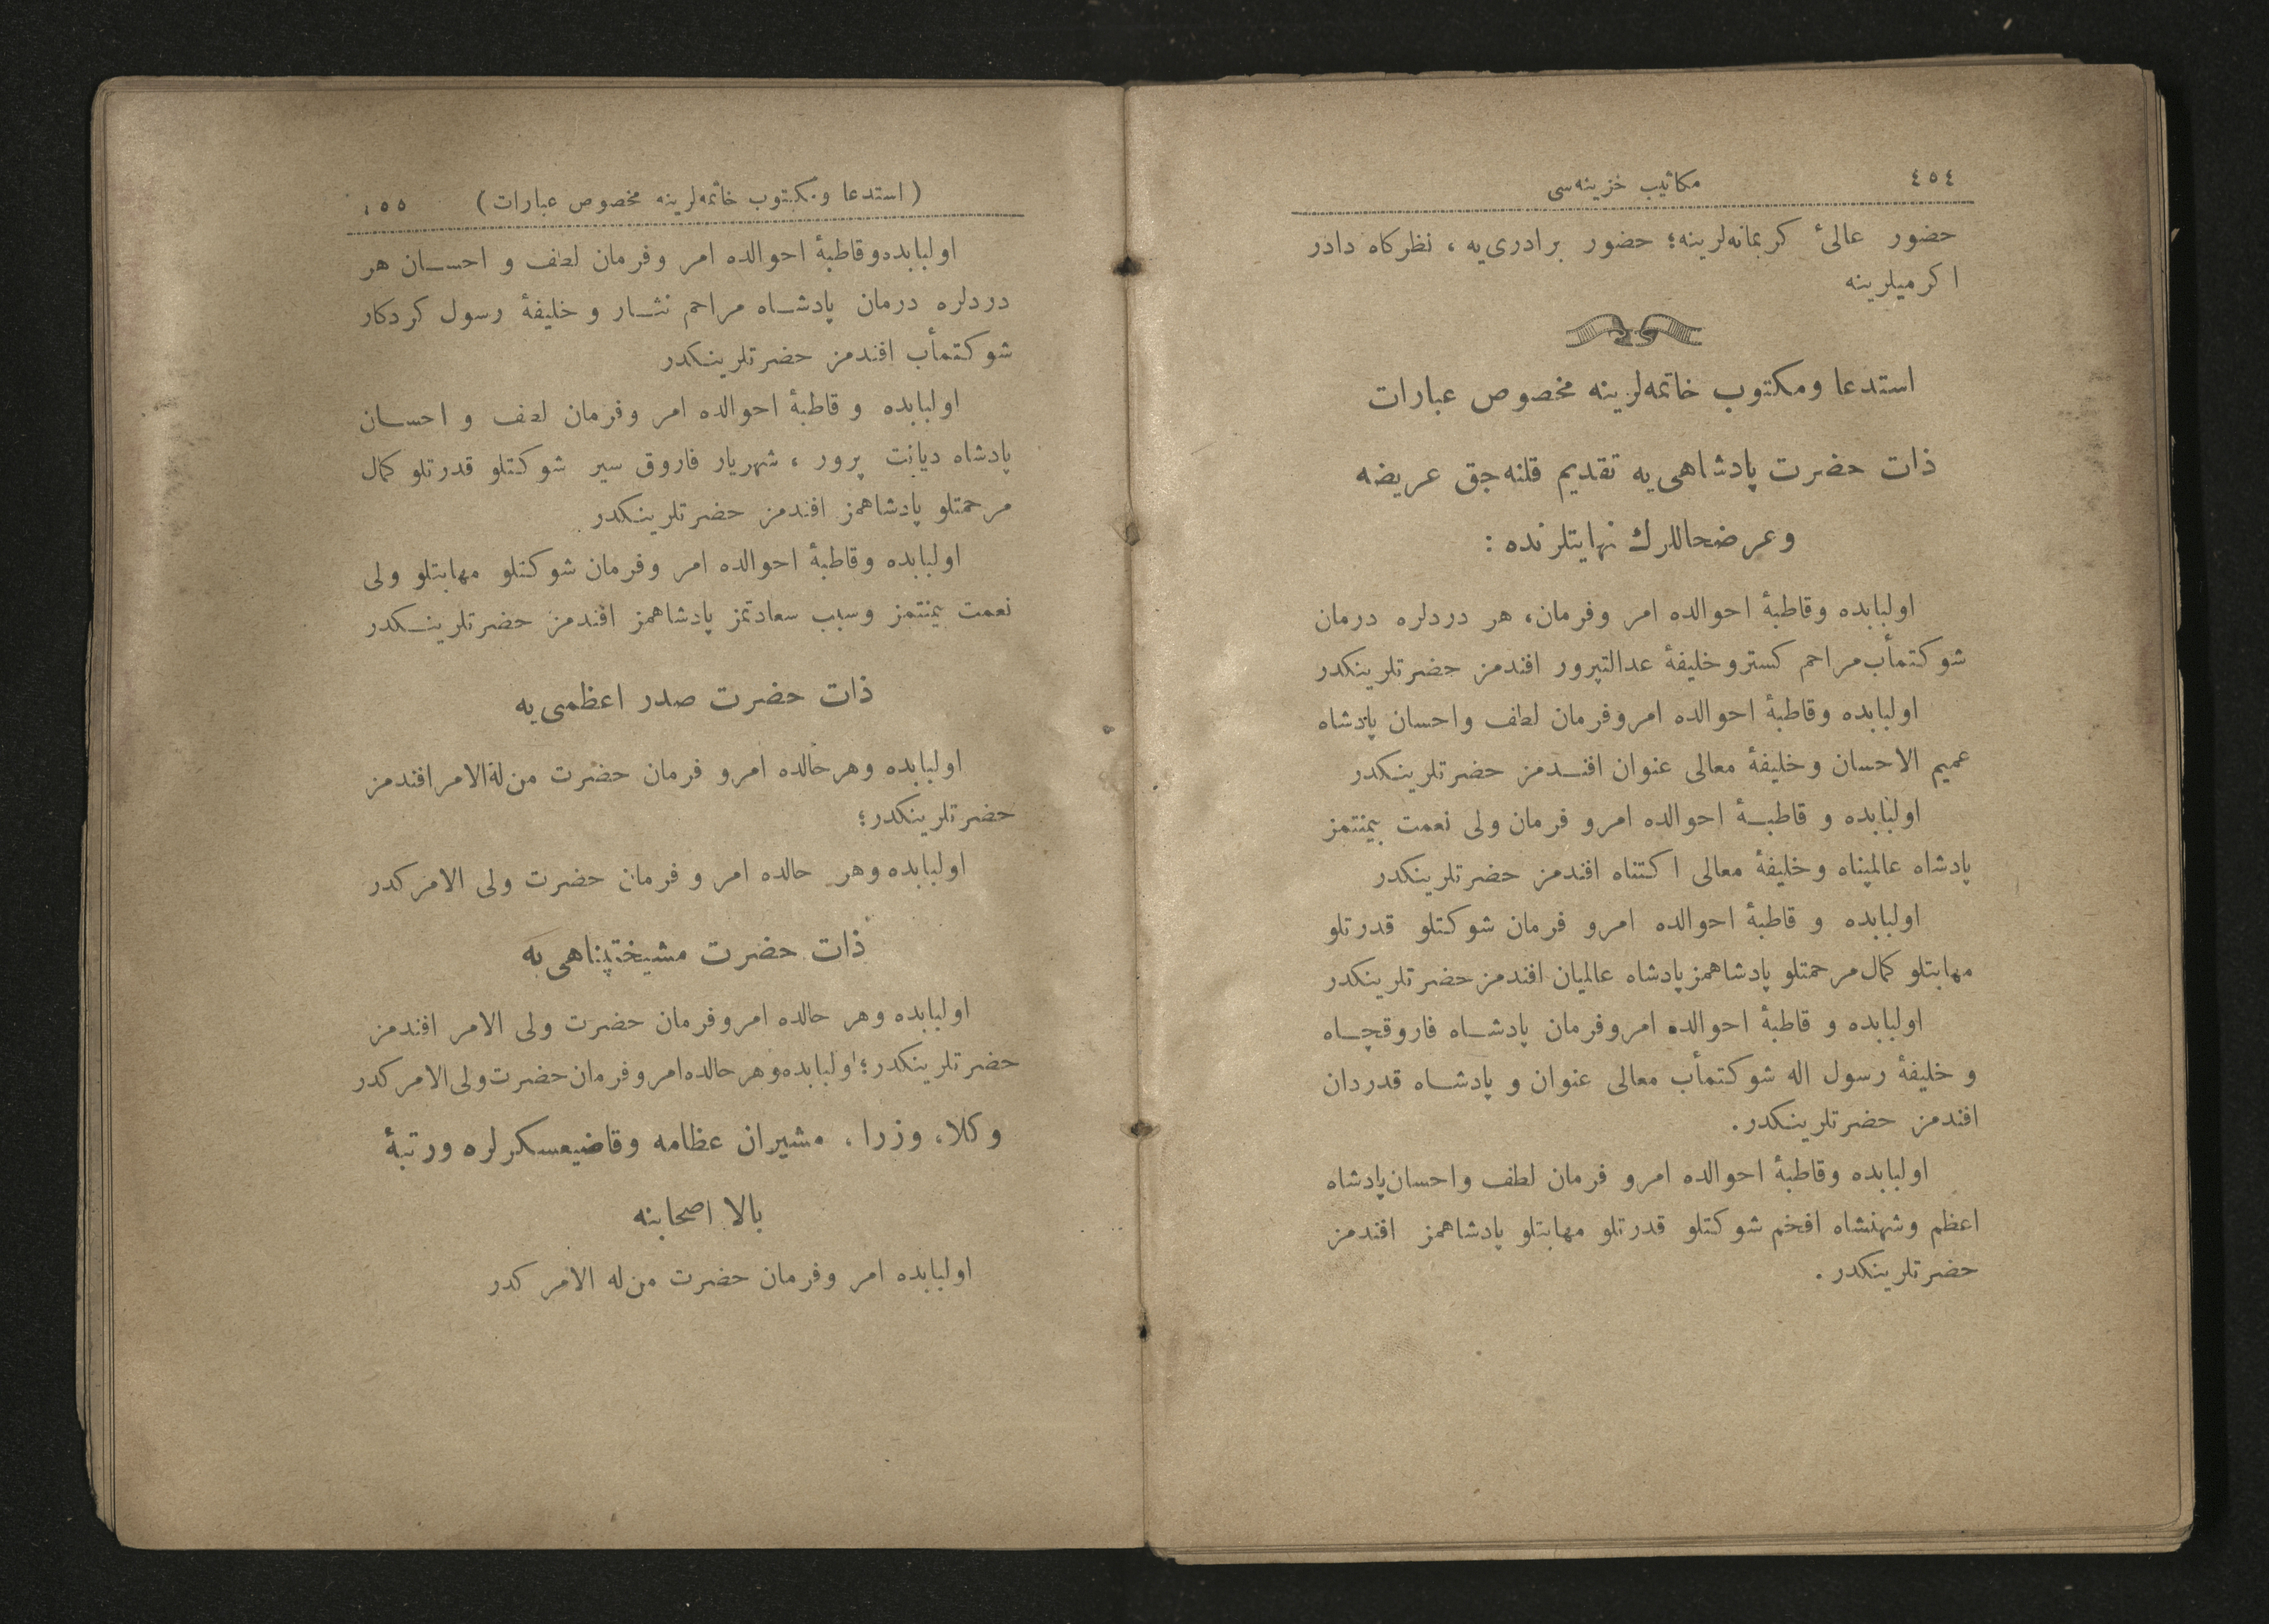 ٤٥٤
مكاتيب خزينه‌سى
حضور عالىٔ كريمانه‌لرينه؛ حضور برادرى‌يه ، نظركاه دادر
اكرميلرينه
استدعا ومكتوب خاتمه‌لرينه مخصوص عبارات
ذات حضرت پادشاهى‌يه تقديم قلنه‌جق عريضه
وعرضحاللرك نهايتلرنده :
اولبابده وقاطبهٔ احوالده امر وفرمان، هر دردلره درمان
شوكتمأب مراحم كستر وخليفهٔ عدالتپرور افندمز حضرتلرينكدر
اولبابده وقاطبهٔ احوالده امروفرمان لطف واحسان پادشاه
عميم الاحسان وخليفهٔ معالى عنوان افنـدمز حضرتلرينـكدر
اولبابده و قاطبـهٔ احوالده امرو فرمان ولى نعمت بيمنتمز
پادشاه عالمپناه وخليفهٔ معالى اكتناه افندمز حضرتلرينكدر
اولبابده و قاطبهٔ احوالده امرو فرمان شوكتلو قدرتلو
مهابتلو كمال مرحمتلو پادشاهمز پادشاه عالميان افندمز حضرتلرينكدر
اولبابده و قاطبهٔ احوالده امروفرمان پادشـاه فاروقجـاه
و خليفهٔ رسول اله شوكتمأب معالى عنوان و پادشـاه قدردان
افندمز حضرتلرينـكدر.
اولبابده وقاطبهٔ احوالده امرو فرمان لطف واحسان پادشاه
اعظم وشهنشاه افخم شوكتلو قدرتلو مهابتلو پادشاهمز افندمز
حضرتلرينكدر .
(استدعا ومكتوب خاتمه‌لرينه مخصوص عبارات)
٤٥٥
اولبابده‌وقاطبهٔ احوالده امر وفرمان لطف و احسـان هر
دردلره درمان پادشـاه مراحم نثـار و خليفهٔ رسول كردكار
شوكتمأب افندمز حضرتلرينـكدر
اولبابده و قاطبهٔ احوالده امر وفرمان لطف و احسـان
پادشاه ديانت پرور ، شهريار فاروق سير شوكتلو قدرتلو كمال
مرحمتلو پادشاهمز افندمز حضرتلرينـكدر
اولبابده وقاطبهٔ احوالده امر وفرمان شوكتلو مهابتلو ولى
نعمت بيمنتمز وسبب سعادتمز پادشاهمز افندمز حضرتلرينـكدر
ذات حضرت صدر اعظمى‌يه
اولبابده وهرحالده امرو فرمان حضرت من‌له‌الامر افندمز
حضرتلرينكدر؛
اولبابده وهر حالده امر و فرمان حضرت ولى الامركدر
ذات حضرت مشيختپناهى‌يه
اولبابده وهر حالده امروفرمان حضرت ولى الامر افندمز
حضرتلرينكدر؛ اولبابده‌وهرحالده‌امروفرمان‌حضرت‌ولى‌الامركدر
وكلا، وزرا ، مشيران عظامه وقاضيعسكرلره ورتبهٔ
بالا اصحابنه
اولبابده امر وفرمان حضرت من‌له الامركدر